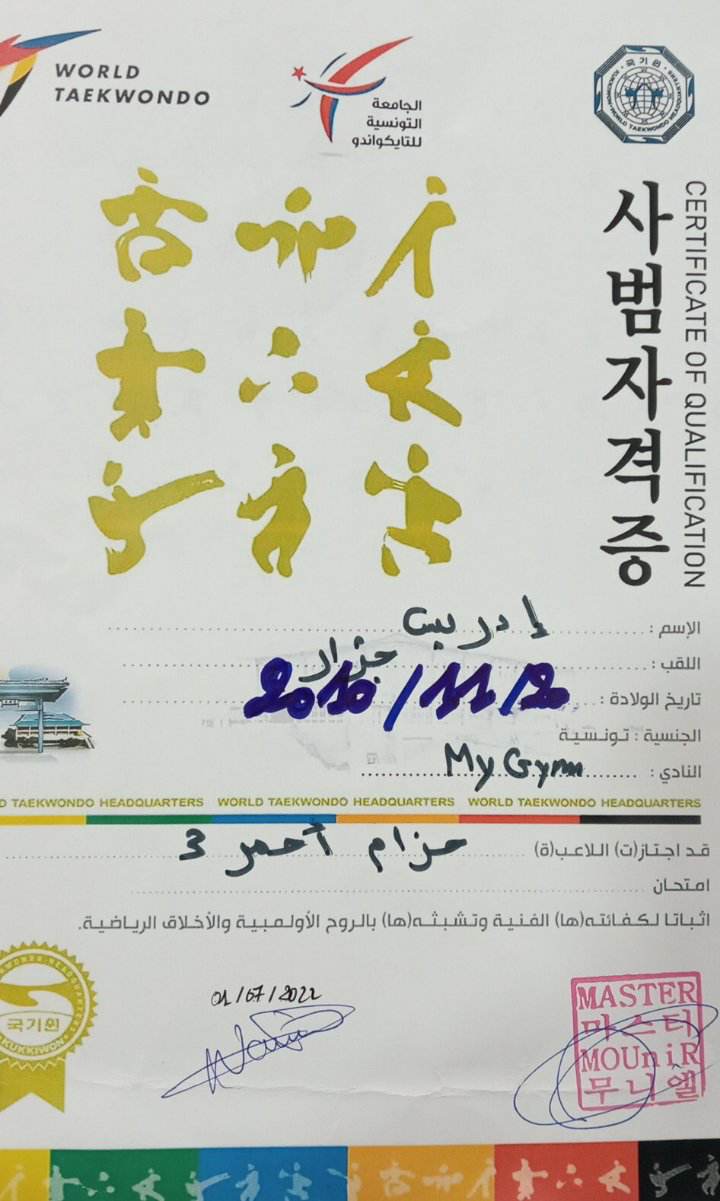 WORLD
TAEKWONDO
الجامعة
التونسية
للتايكواندو
국기원
KUKKIWON WORLD TAEKWONDO HEADQUARTERS
사범자격증
CERTIFICATE OF QUALIFICATION
الإسم : إدريس
اللقب : جزار
تاريخ الولادة : 2010/11/20
الجنسية : تونسية
النادي : My Gym
D TAEKWONDO HEADQUARTERS WORLD TAEKWONDO HEADQUARTERS WORLD TAEKWONDO HEADQUARTERS
قد اجتاز(ت) اللاعب(ة) حزام أحمر 3
امتحان
اثباتا لكفائته(ها) الفنية وتشبثه(ها) بالروح الأولمبية والأخلاق الرياضية.
01/07/2022
국기원
KUKKIWON
MASTER
마스터
MOUniR
무니엘